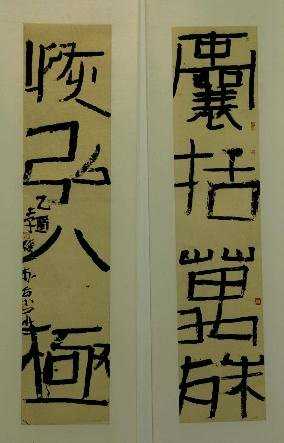 囊括萬殊
恢弘八極
乙酉